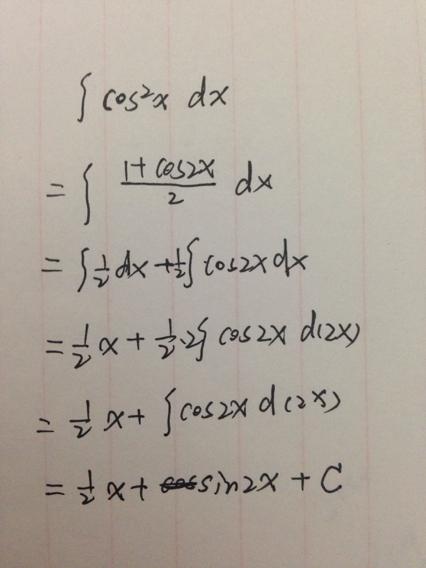 ∫ cos²x dx
= ∫ (1+cos2x)/2 dx
= ∫ 1/2 dx + 1/2 ∫ cos2x dx
= 1/2 x + 1/2 · 2 ∫ cos2x d(2x)
= 1/2 x + ∫ cos2x d(2x)
= 1/2 x + sin2x + C